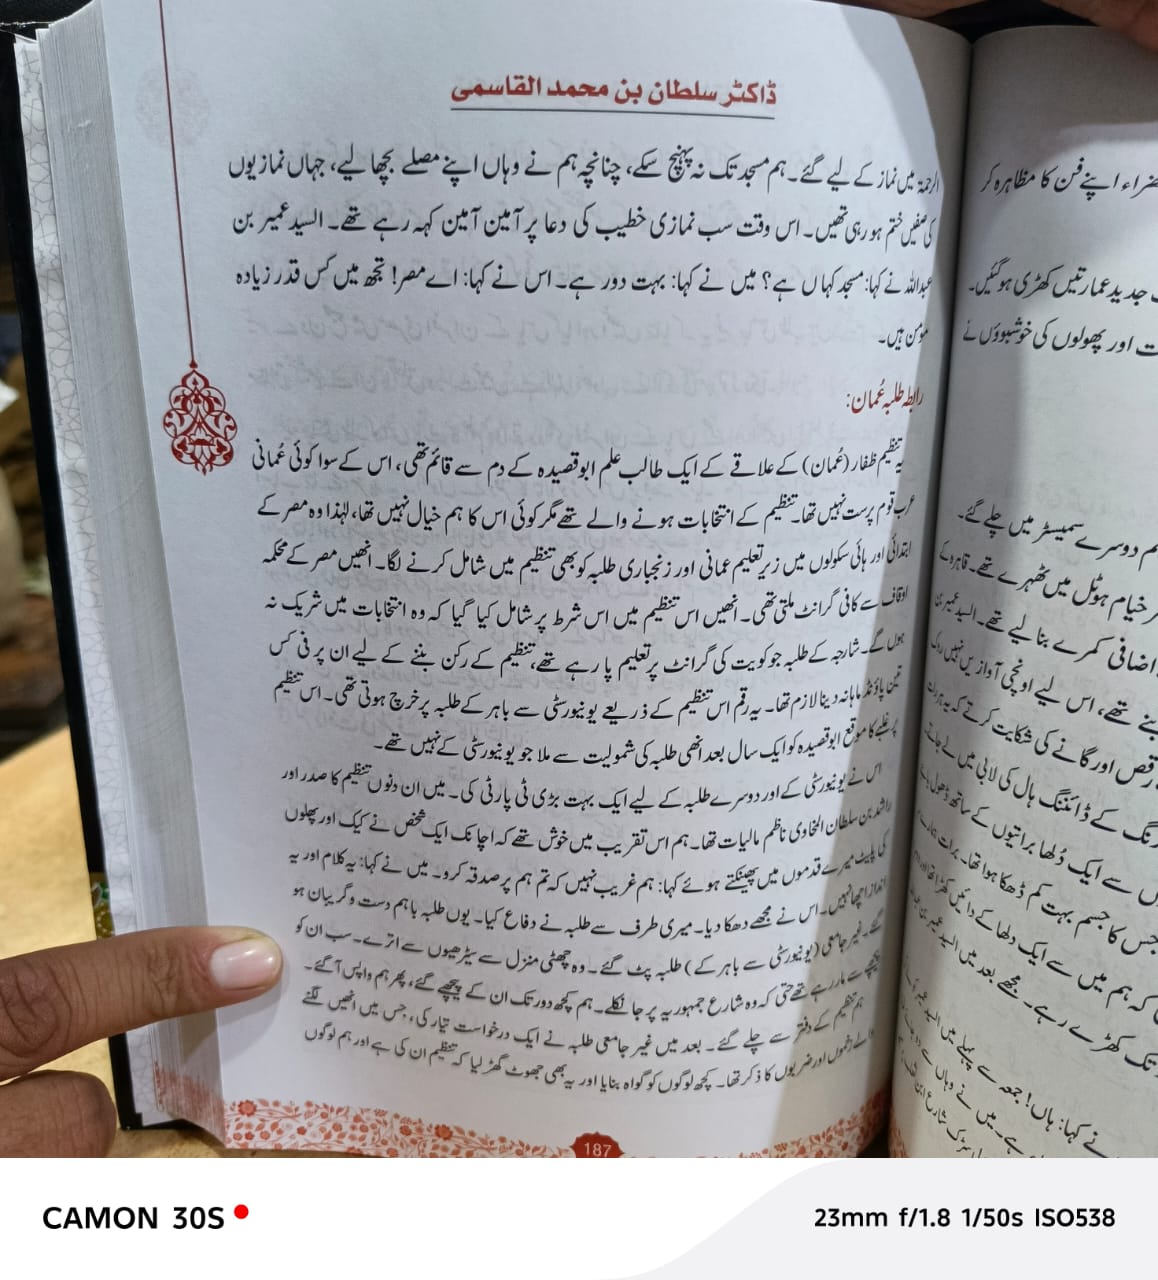 ڈاکٹر سلطان بن محمد القاسمی
الرحمۃ میں نماز کے لیے گئے۔ ہم مسجد تک نہ پہنچ سکے، چنانچہ ہم نے وہاں اپنے مصلے بچھا لیے، جہاں نمازیوں
کی صفیں ختم ہو رہی تھیں۔ اس وقت سب نمازی خطیب کی دعا پر آمین آمین کہہ رہے تھے۔ السید عمیر بن
عبداللہ نے کہا: مسجد کہاں ہے؟ میں نے کہا: بہت دور ہے۔ اس نے کہا: اے مصر! تجھ میں کس قدر زیادہ
مؤمن ہیں۔
رابطہ طلبہ عُمان:
یہ تنظیم ظفار (عُمان) کے علاقے کے ایک طالب علم ابوقصیدہ کے دم سے قائم تھی، اس کے سوا کوئی عُمانی
عرب قوم پرست نہیں تھا۔ تنظیم کے انتخابات ہونے والے تھے مگر کوئی اس کا ہم خیال نہیں تھا، لہٰذا وہ مصر کے
ابتدائی اور ہائی سکولوں میں زیر تعلیم عمانی اور زنجباری طلبہ کو بھی تنظیم میں شامل کرنے لگا۔ انھیں مصر کے محکمہ
اوقاف سے کافی گرانٹ ملتی تھی۔ انھیں اس تنظیم میں اس شرط پر شامل کیا گیا کہ وہ انتخابات میں شریک نہ
ہوں گے۔ شارجہ کے طلبہ جو کویت کی گرانٹ پر تعلیم پا رہے تھے، تنظیم کے رکن بننے کے لیے ان پر فی کس
تین پاؤنڈ ماہانہ دینا لازم تھا۔ یہ رقم اس تنظیم کے ذریعے یونیورسٹی سے باہر کے طلبہ پر خرچ ہوتی تھی۔ اس تنظیم
پر غلبے کا موقع ابوقصیدہ کو ایک سال بعد انھی طلبہ کی شمولیت سے ملا جو یونیورسٹی کے نہیں تھے۔
اس نے یونیورسٹی کے اور دوسرے طلبہ کے لیے ایک بہت بڑی ٹی پارٹی کی۔ میں ان دنوں تنظیم کا صدر اور
راشد بن سلطان المخاوی ناظم مالیات تھا۔ ہم اس تقریب میں خوش تھے کہ اچانک ایک شخص نے کیک اور پھلوں
کی پلیٹ میرے قدموں میں پھینکتے ہوئے کہا: ہم غریب نہیں کہ تم ہم پر صدقہ کرو۔ میں نے کہا: یہ کلام اور یہ
انداز اچھا نہیں۔ اس نے مجھے دھکا دیا۔ میری طرف سے طلبہ نے دفاع کیا۔ یوں طلبہ باہم دست و گریبان ہو
گئے۔ غیر جامعی (یونیورسٹی سے باہر کے) طلبہ پٹ گئے۔ وہ چھٹی منزل سے سیڑھیوں سے اترے۔ سب ان کو
پیچھے سے مار رہے تھے حتی کہ وہ شارع جمہوریہ پر جا نکلے۔ ہم کچھ دور تک ان کے پیچھے گئے، پھر ہم واپس آ گئے۔
ہم تنظیم کے دفتر سے چلے گئے۔ بعد میں غیر جامعی طلبہ نے ایک درخواست تیار کی، جس میں انھیں لگنے
والے زخموں اور ضربوں کا ذکر تھا۔ کچھ لوگوں کو گواہ بنایا اور یہ بھی جھوٹ گھڑ لیا کہ تنظیم ان کی ہے اور ہم لوگوں
187
اپنے فن کا مظاہرہ کر
جدید عمارتیں کھڑی ہو گئیں۔
اور پھولوں کی خوشبوؤں نے
دوسرے سمیسٹر میں چلے گئے۔
خیام ہوٹل میں ٹھہرے تھے۔ قاہرہ کے
اضافی کمرے بنا لیے تھے۔ السید عمیر بن
تھے، اس لیے اونچی آوازیں نہیں
رقص اور گانے کی شکایت کرتے کہ یہ
کے ڈائننگ ہال کی لابی میں لے
سے ایک دُلھا براتیوں کے ساتھ ڈھول
جس کا جسم بہت کم ڈھکا ہوا تھا۔ برات
کہ ہم میں سے ایک دلھا کے دائیں کھڑا تھا اور
تک کھڑے رہے۔ مجھے بعد میں السید عمیر بن
نے کہا: ہاں! جمعہ سے پہلے میں السید
ہے۔ میں نے وہاں سے
سڑک شارع
CAMON 30S
23mm f/1.8 1/50s ISO538